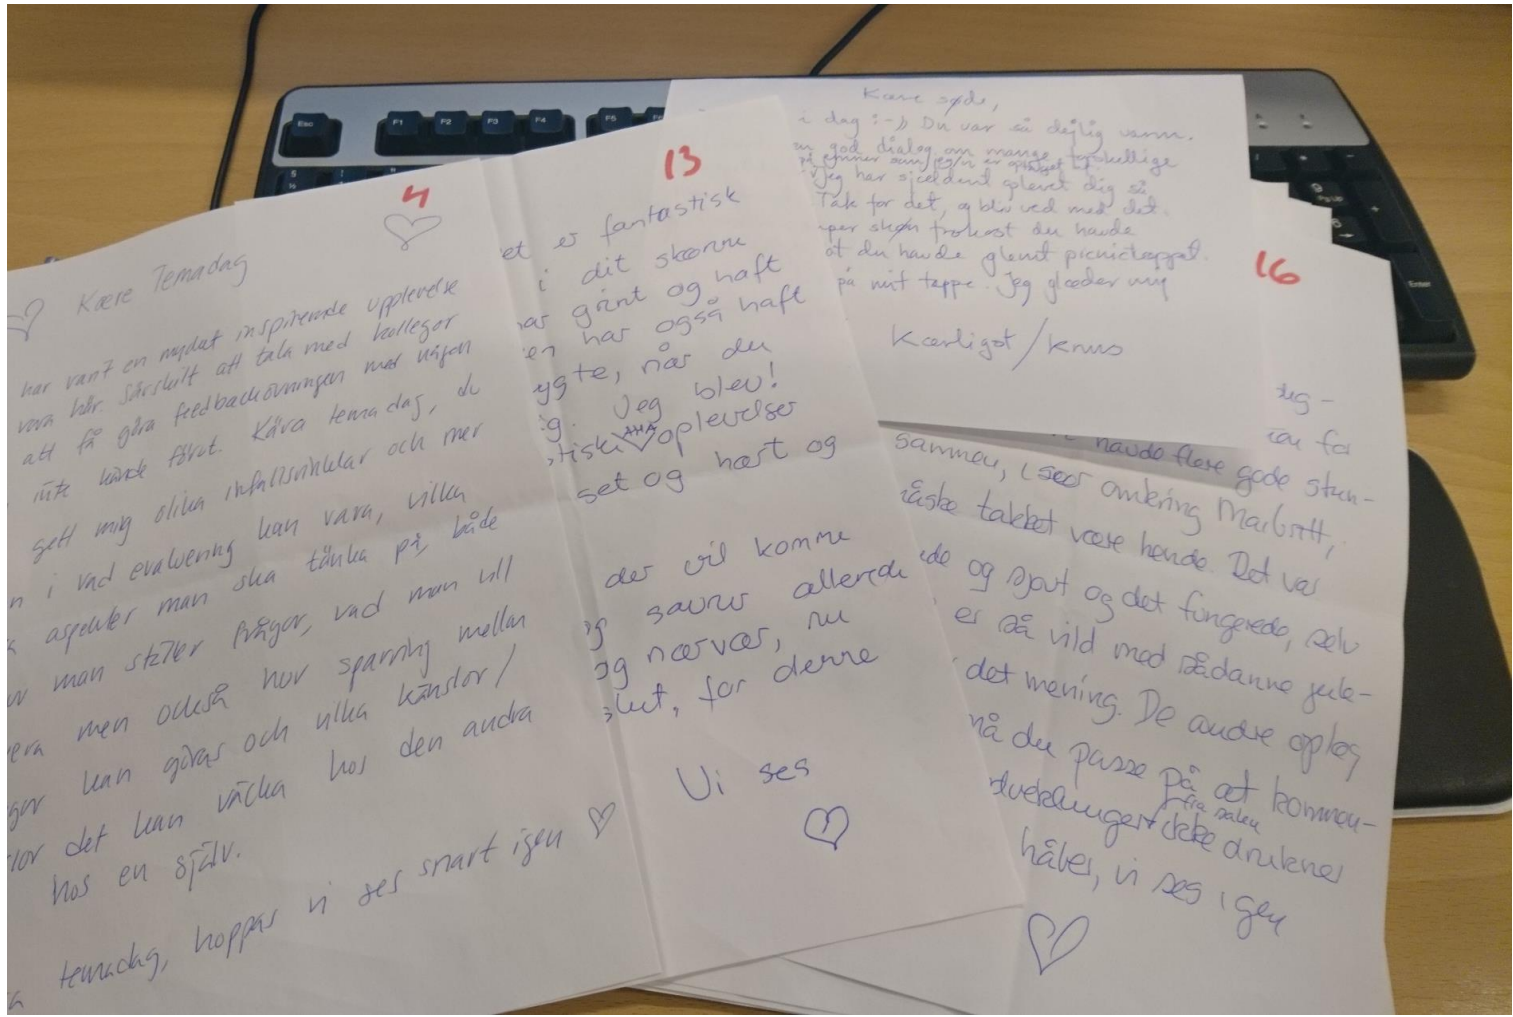 Esc
F1
F2
F3
F4
F5
Enter
4
Kære Temadag
har varit en mycket inspirerende upplevelse
vara här. Särskilt att tala med kollegor
att få göra feedbackövningen med någon
inte kände förut. Kära temadag, du
gett mig olika infallsvinklar och mer
i vad evaluering kan vara, vilka
aspekter man ska tänka på, både
man ställer frågor, vad man vill
men också hur sparring mellan
kan göras och vilka känslor/
det kan väcka hos den andra
hos en själv.
temadag, hoppas vi ses snart igen
13
et er fantastisk
i dit skønne
har grint og haft
en har også haft
ygte, når du
ig. Jeg blev!
tiske AHA oplevelser
set og hørt og
der vil komme
og savner allerede
og nærvær, nu
slut, for denne
Vi ses
Kære søde,
i dag :-)) Du var så dejlig varm.
god dialog om mange forskellige
på emner som jeg/vi er optaget af
jeg har sjældent oplevet dig så
Tak for det, og bliv ved med det.
super skøn frokost du havde
at du havde glemt picnictæppet.
på mit tæppe. Jeg glæder mig
Kærligst / Knus
16
dig -
for
havde flere gode stun-
sammen, især omkring Maibritt,
måske takket være hende. Det var
og sjovt og det fungerede, selv
er så vild med sådanne jule-
det mening. De andre oplæg
må du passe på at kommen-
udvekslinger fra salen ikke druknes
håber, vi ses igen